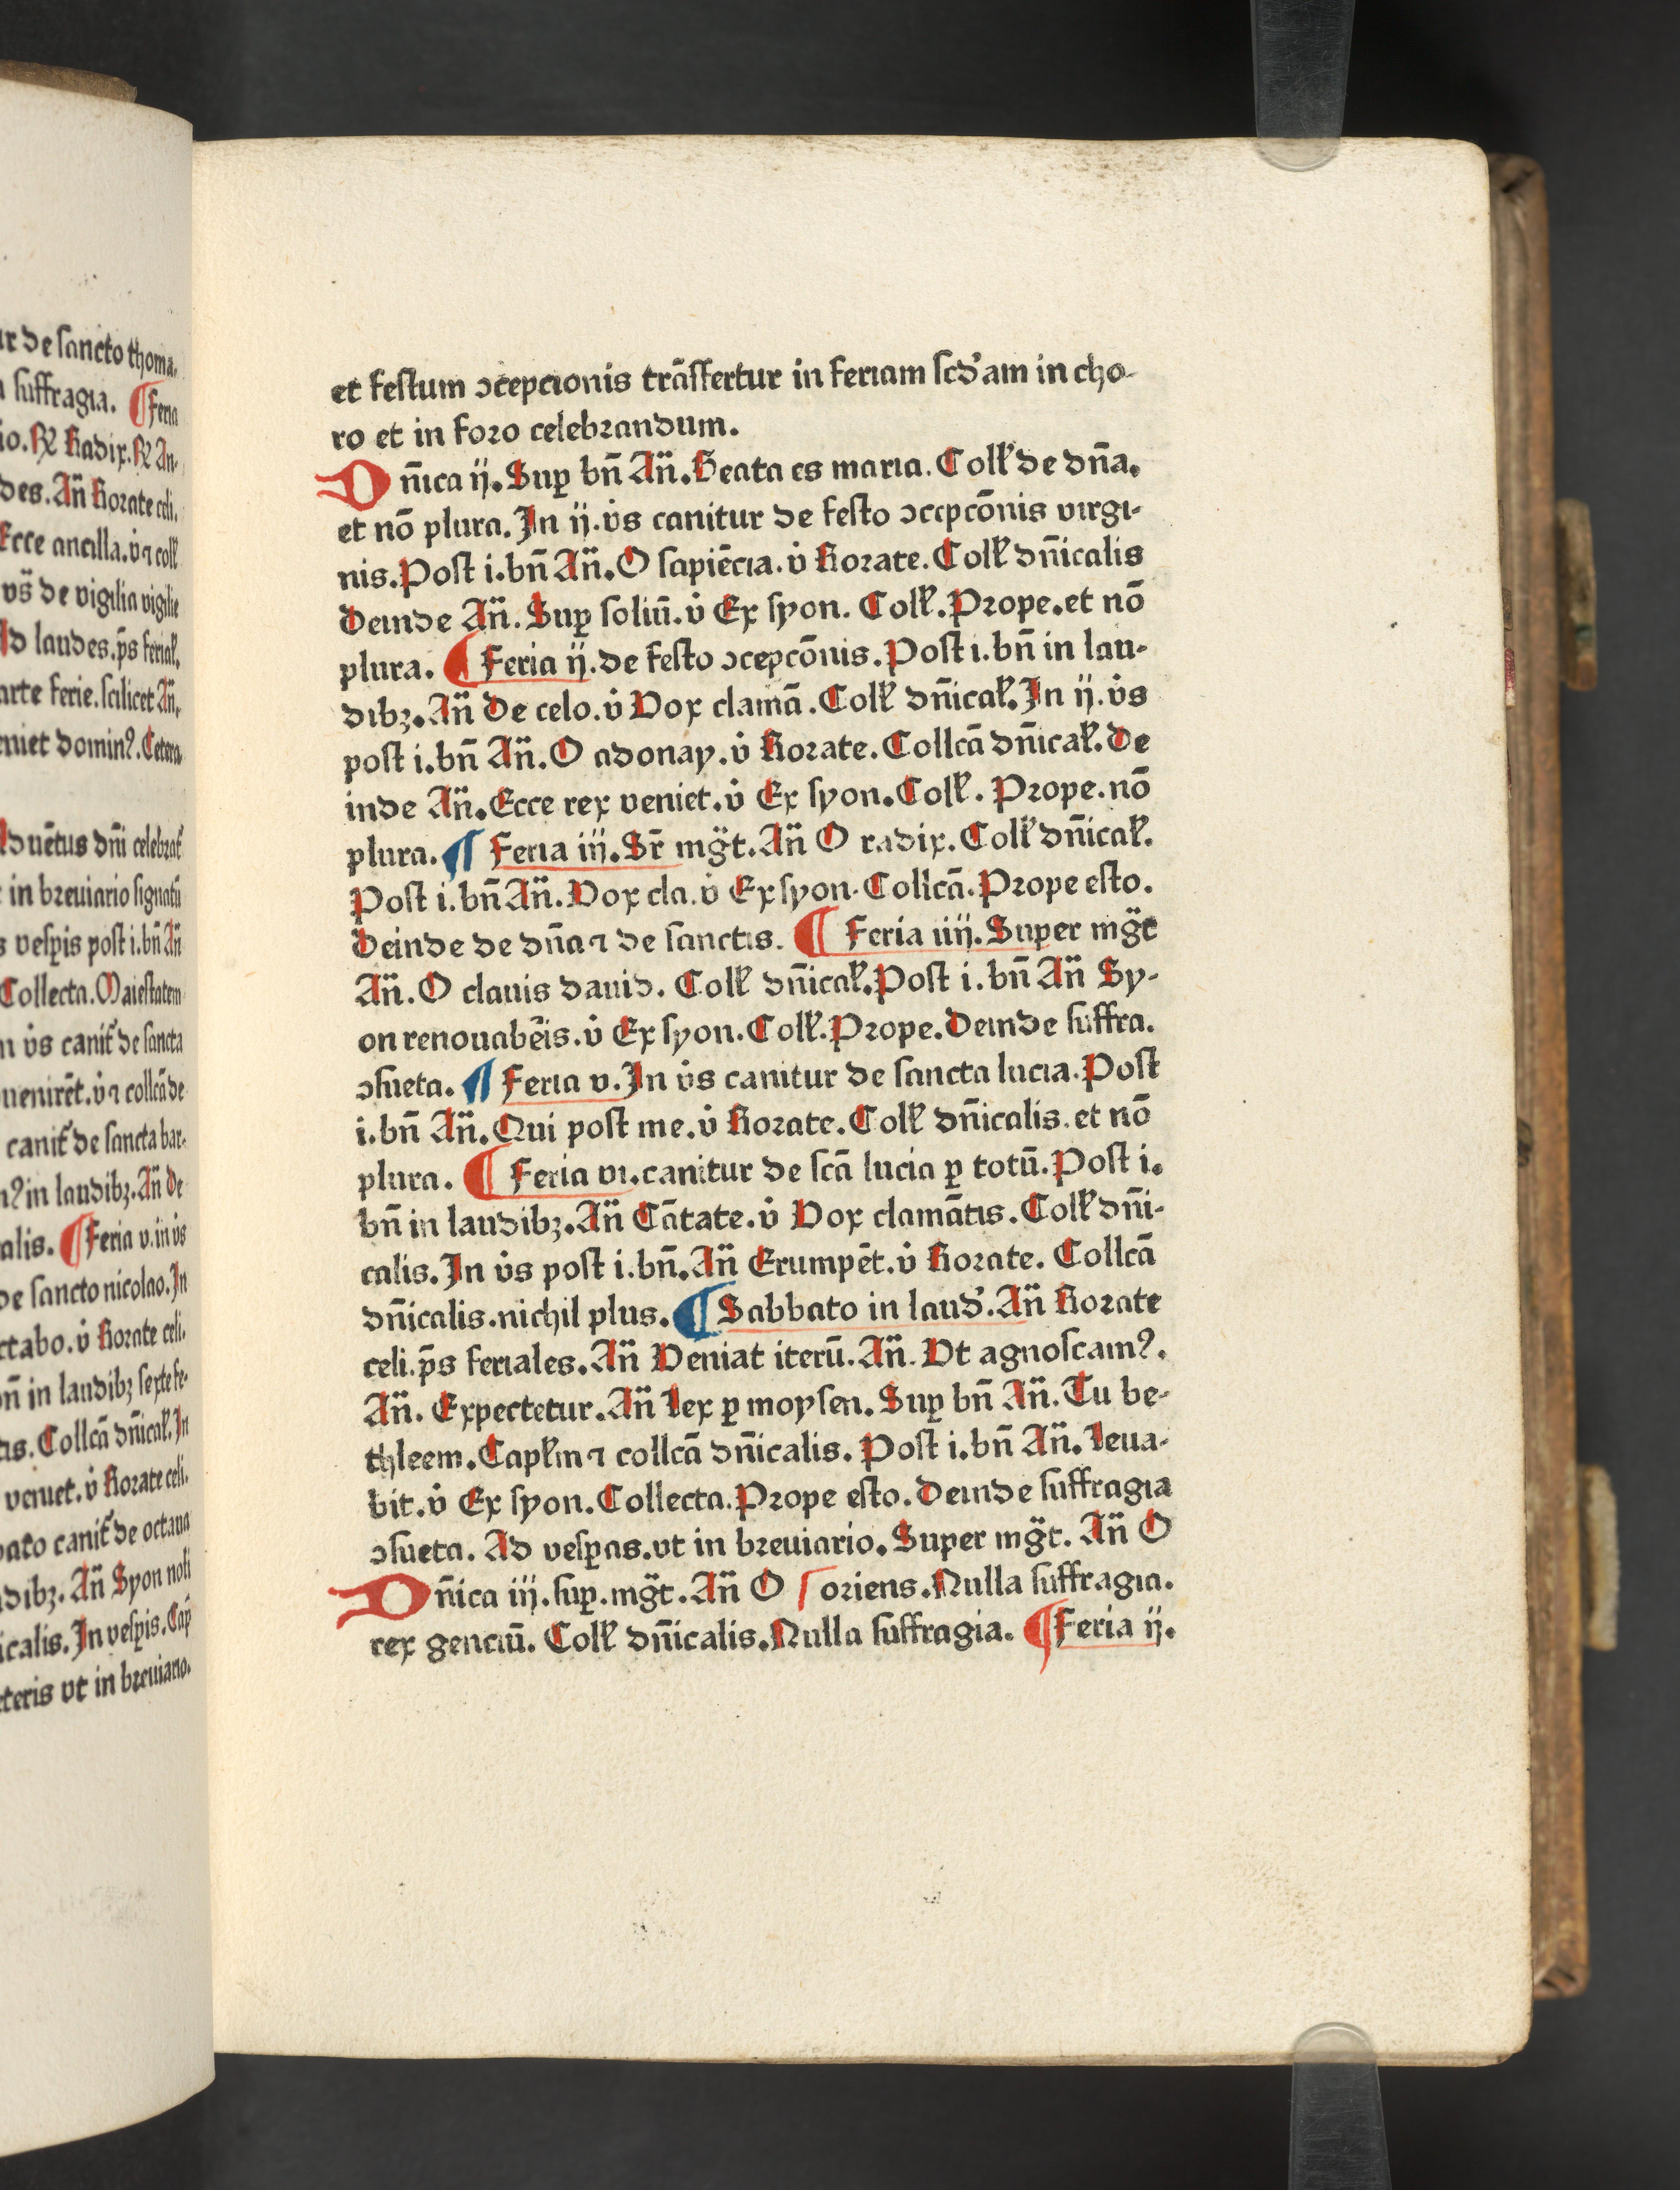 ur de sancto thoma.
suffragia. ¶ Feria
io. R̃ Radix. R̃ An-
des. An̄ Rorate celi.
Ecce ancilla. v̇ ⁊ coll̃
vs̄ de vigilia vigilie
Ad laudes. p̄s ferial̃.
arte ferie. scilicet An̄.
eniet domin⁹. Cetera
Aduētus dn̄i celebrat̃
in breuiario signatū
vesp̲is post i. bn̄ An̄
Collecta. Maiestatem
v̇s canit̃ de sancta
uenirēt. v̇ ⁊ collcā de
canit̃ de sancta bar-
in laudibꝫ. An̄ De
alis. ¶ Feria v. in v̇s
de sancto nicolao. In
ctabo. v̇ Rorate celi.
bn̄ in laudibꝫ sexte fe-
Collcā dn̄ical̃. In
veniet. v̇ Rorate celi.
bato canit̃ de octaua
dibꝫ. An̄ Syon noli
icalis. In vesp̲is. Cap̄
eteris vt in breuiario.
et festum ↄcepcionis trāsfertur in feriam scd̓am in cho-
ro et in foro celebrandum.
Dn̄ica ij. Suꝑ bn̄ An̄. Beata es maria. Coll̃ de dn̄a.
et nō plura. In ij. v̇s canitur de festo ↄcepcōnis virgi-
nis. Post i. bn̄ An̄. O sapiēcia. v̇ Rorate. Coll̃ dn̄icalis
Deinde An̄. Suꝑ soliū. v̇ Ex syon. Coll̃. Prope. et nō
plura. ¶ Feria ij. de festo ↄcepcōnis. Post i. bn̄ in lau-
dibꝫ. An̄ De celo. v̇ Vox clamā. Coll̃ dn̄ical̃. In ij. v̇s
post i. bn̄ An̄. O adonay. v̇ Rorate. Collcā dn̄ical̃. De
inde An̄. Ecce rex veniet. v̇ Ex syon. Coll̃. Prope. nō
plura. ¶ Feria iij. Sr̄ mg̈t. An̄ O radix. Coll̃ dn̄ical̃.
Post i. bn̄ An̄. Vox cla. v̇ Ex syon. Collcā. Prope esto.
Deinde de dn̄a ⁊ de sanctis. ¶ Feria iiij. Super mg̈t
An̄. O clauis dauid. Coll̃ dn̄ical̃. Post i. bn̄ An̄ Sy-
on renouabēis. v̇ Ex syon. Coll̃. Prope. Deinde suffra.
ↄsueta. ¶ Feria v. In v̇s canitur de sancta lucia. Post
i. bn̄ An̄. Qui post me. v̇ Rorate. Coll̃ dn̄icalis. et nō
plura. ¶ Feria vi. canitur de scā lucia ꝑ totū. Post i.
bn̄ in laudibꝫ. An̄ Cātate. v̇ Vox clamātis. Coll̃ dn̄i-
calis. In v̇s post i. bn̄. An̄ Erumpēt. v̇ Rorate. Collcā
dn̄icalis. nichil plus. ¶ Sabbato in laud̓. An̄ Rorate
celi. p̄s feriales. An̄ Veniat iterū. An̄. Vt agnoscam⁹.
An̄. Expectetur. An̄ Lex ꝑ moysen. Suꝑ bn̄ An̄. Tu be-
thleem. Capl̃m ⁊ collcā dn̄icalis. Post i. bn̄ An̄. Leua-
bit. v̇ Ex syon. Collecta. Prope esto. Deinde suffragia
ↄsueta. Ad vesꝑas. vt in breuiario. Super mg̈t. An̄ O
Dn̄ica iij. suꝑ. mg̈t. An̄ O ⌈ oriens. Nulla suffragia.
rex genciū. Coll̃ dn̄icalis. Nulla suffragia. ¶ Feria ij.